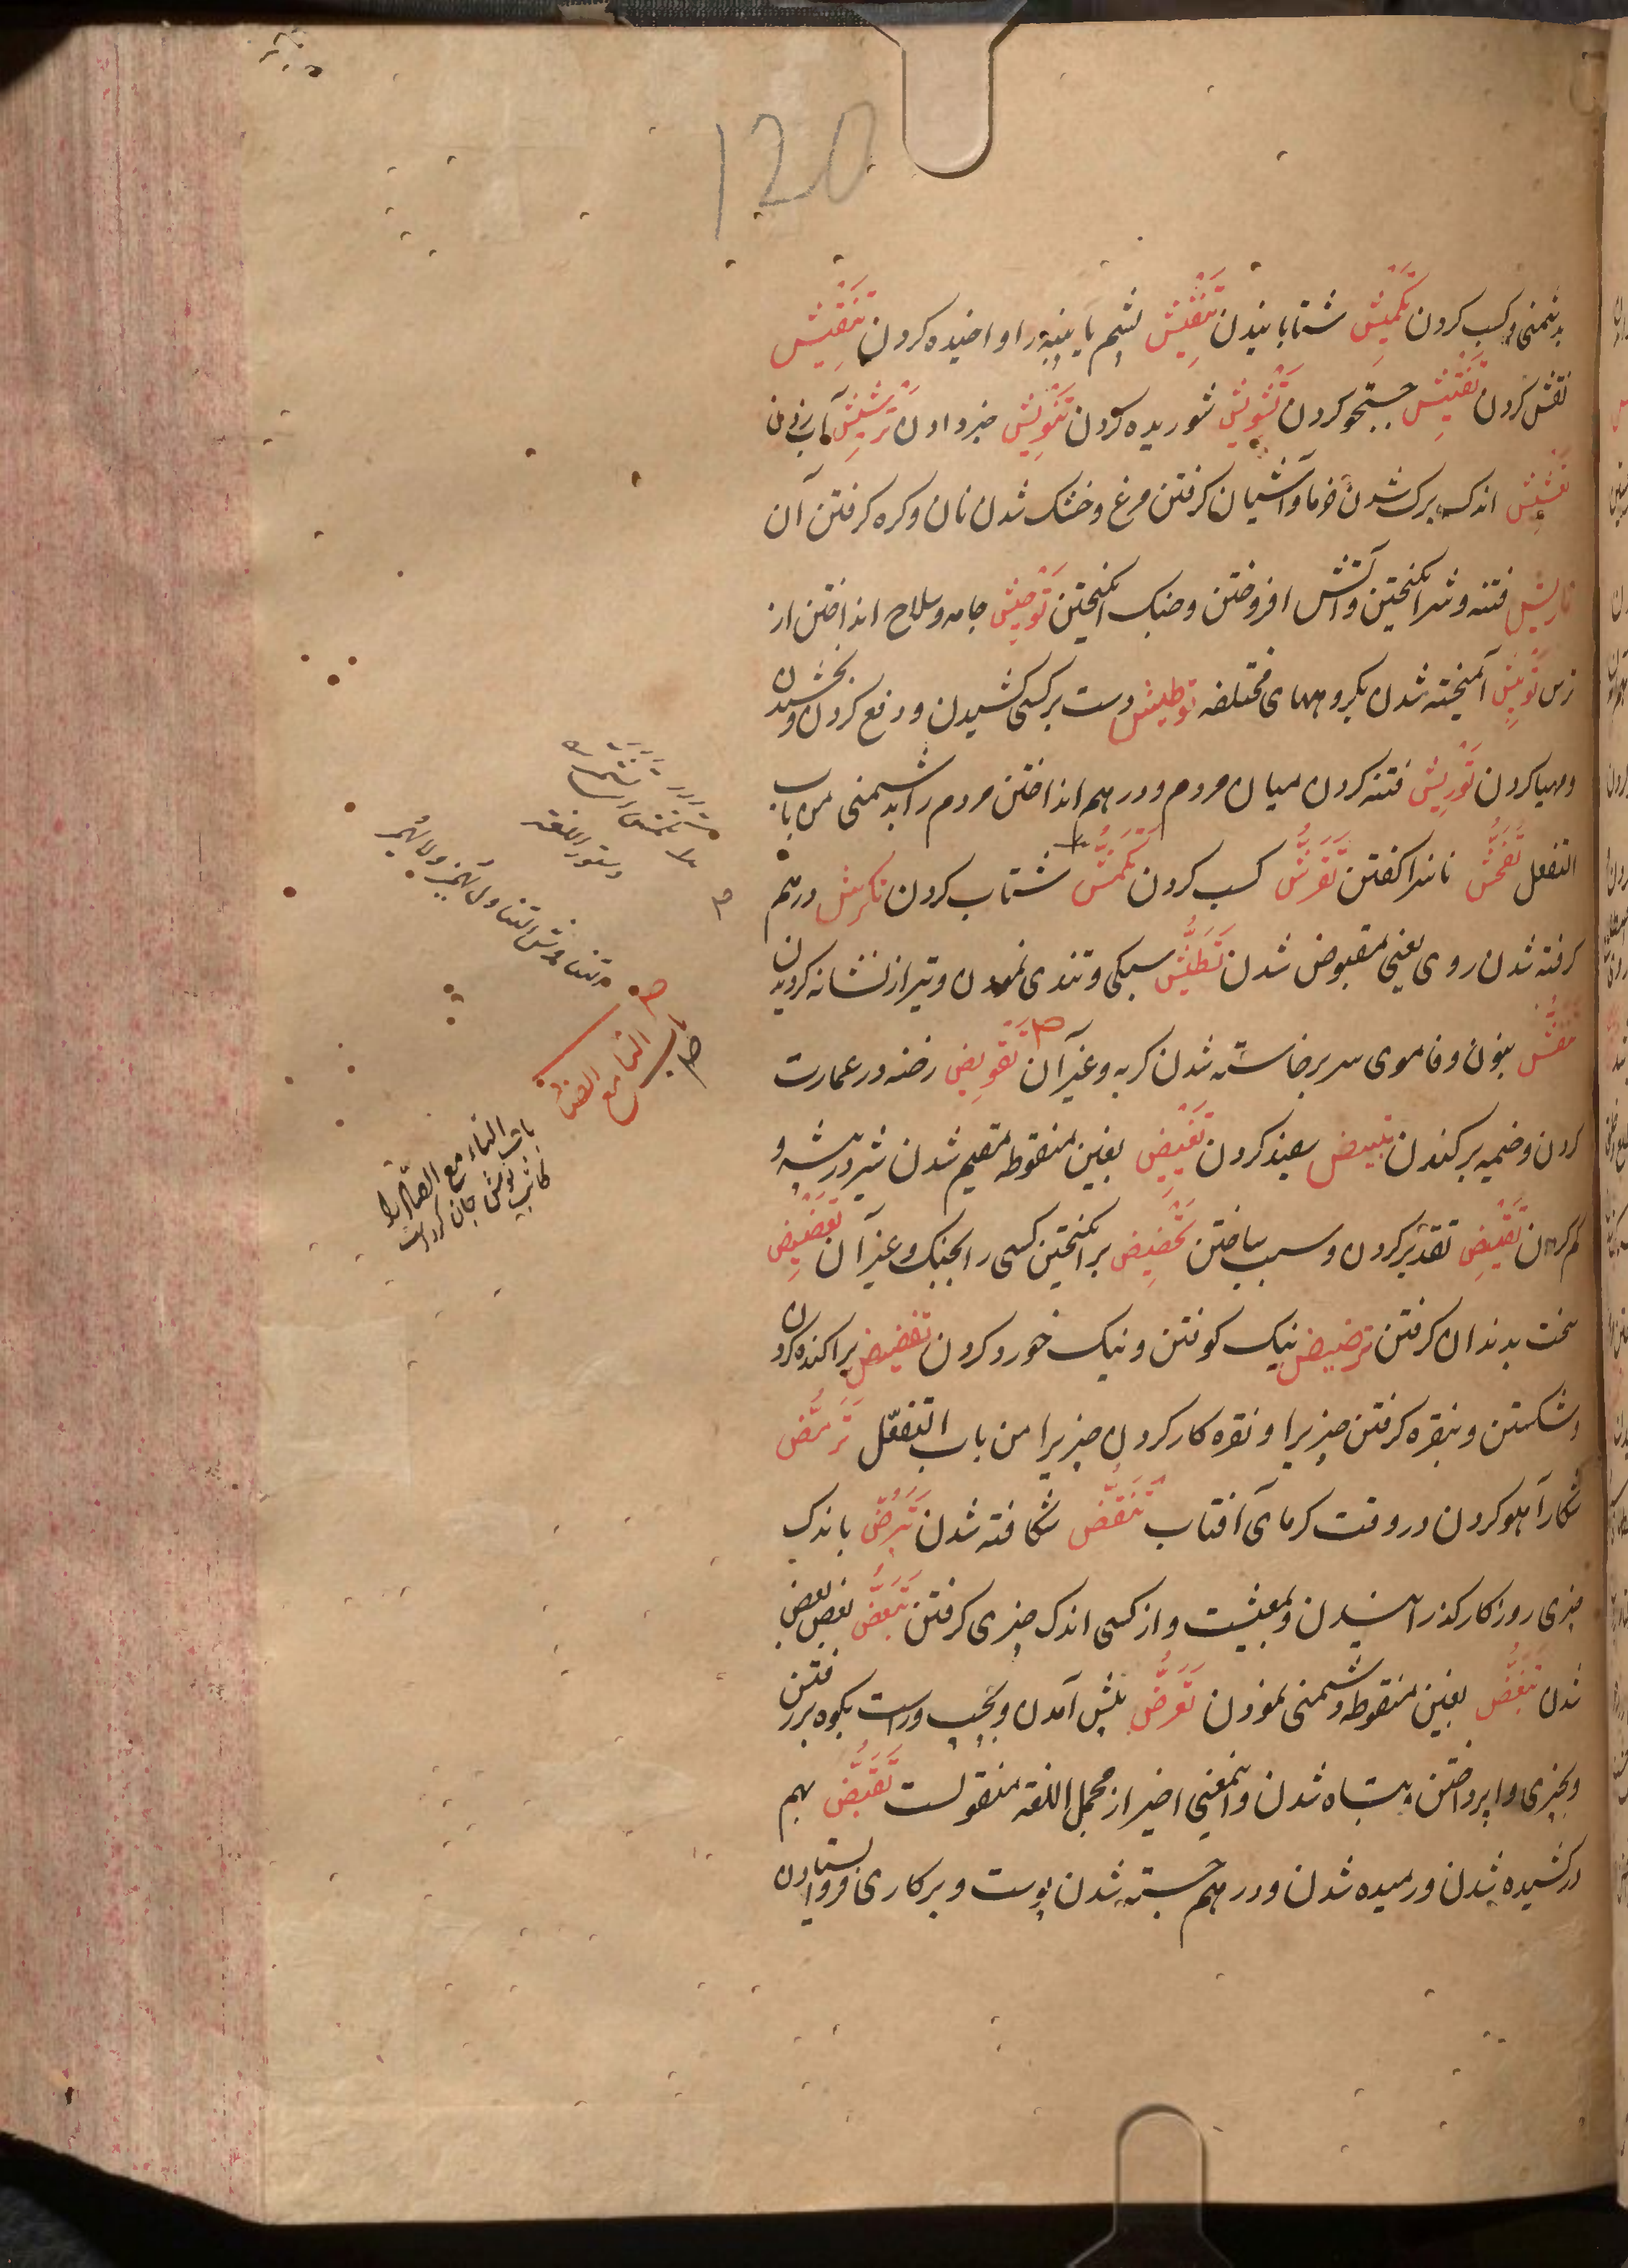 120
بدشمنی و کسب کردن تَکْمِیْش شتابانیدن تَنْفِیْش پشم یا پنبه را واخیده کردن تَنْقِیْش
نقش کردن تَفْتِیْش جستجو کردن تَشْوِیْش شوریده کردن تَنْوِیْش خبر دادن تَرْشِیْش آب زدن
تَعْشِیْش اندک برک شدن خرما و آشیان کرفتن مرغ و خشک شدن نان و کره کرفتن آن
تاریش فتنه و شر انکیختن و آتش افروختن و جنک انکیختن تَوْحِیْش جامه و سلاح انداختن از
ترس تَوْبِیْش آمیخته شدن بکروههای مختلفه توطیش دست برکسی کشیدن و دفع کردن و بخشیدن
و مهیا کردن تَوْرِیْش فتنه کردن میان مردم و در هم انداختن مردم را بدشمنی من باب
التفعل تَفَحُّش ناسزا کفتن تَقَرُّش کسب کردن تَکَمُّش شتاب کردن تکرّش درهم
کرفته شدن روی یعنی مقبوض شدن تَطَیُّش سبکی و تندی نمودن و تیر از نشانه کردیدن
تَنَفُّش بنون و فا موی سر برخاسته شدن کربه و غیر آن تَقْوِیْض رخنه در عمارت
کردن و خیمه برکندن تبییض سفید کردن تَغْیِیْض بغین منقوطه مقیم شدن شیر در بیشه و
کم کردن تَقْیِیْض تقدیر کردن و سبب ساختن تَحْضِیْض برانکیختن کسی را بجنک و غیر آن تَعْضِیْض
سخت بدندان کرفتن ترضیض نیک کوفتن و نیک خورد کردن تفضیض پراکنده کردن
و شکستن و بنقره کرفتن چیزیرا و نقره کار کردن چیزیرا من باب التفعّل تَرَمُّض
شکار آهو کردن در وقت کرمای آفتاب تَنَقُّض شکافته شدن تَبَرُّض باندک
چیزی روزکار کذرانیدن و بمعیشت و از کسی اندک چیزی کرفتن تَبَعُّض بعض بعض
شدن تَبَغُّض بغین منقوطه دشمنی نمودن تَعَرُّض پیش آمدن و بچپ و راست بکوه بر رفتن
و بچیزی وا پرداختن و تباه شدن و اینمعنی اخیر از مجمل اللغة منقولست تَقَبُّض بهم
درکشیده شدن و رمیده شدن و در هم جسته شدن پوست و بر کاری فرو ایستادن
دستور اللغة
تناوش التناول یهمز ولا یهمز
باب التاء مع الضاد
باب التاء مع الصاد را
کاتب نوش جان کرده است